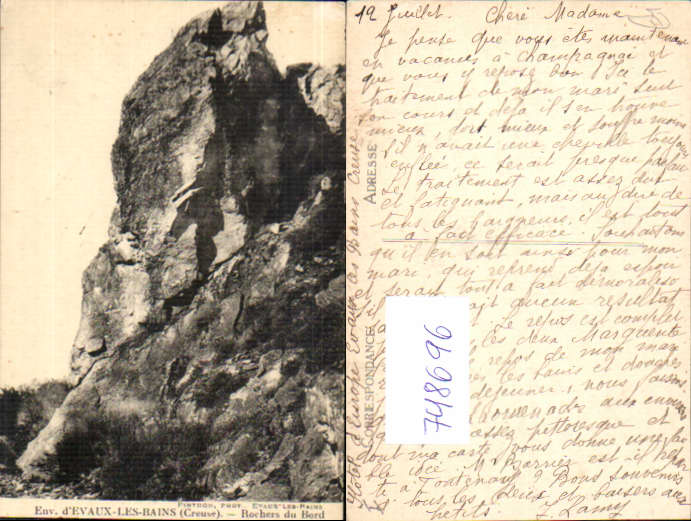 PINTHON, PHOT. EVAUX-LES-BAINS
Env. d'EVAUX-LES-BAINS (Creuse). — Rochers du Bord
12 Juillet. Chère Madame
Je pense que vous êtes maintenant
en vacances à Champagnac et
que vous y reposez bien Ici le
traitement de mon mari suit
son cours et déjà il s'en trouve
mieux, dort mieux et souffre moins
s'il n'avait une cheville toujours
enflée ce serait presque parfait
Le traitement est assez dur
et fatiguant, mais au dire de
tous les baigneurs, il est tout
à fait efficace. Souhaitons
qu'il en soit ainsi pour mon
mari, qui reprend déjà espoir
et serait tout à fait démoralisé
aucun résultat
Le repos est complet
les deux Marguerite
repos de mon mari
les bains et douches
déjeuner, nous faisons
promenades aux environs
assez pittoresque et
dont ma carte vous donne une
M. Barrier est il
à Bons souvenirs
à tous les deux et baisers aux
petits
Hôtel de l'Europe Evaux les Bains Creuse
ADRESSE
CORRESPONDANCE
748696